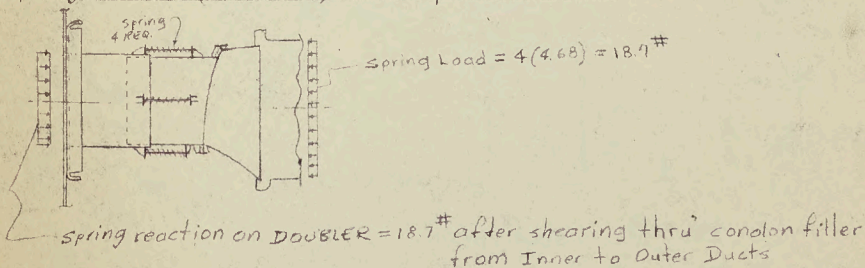 spring
4 REQ.
spring Load = 4(4.68) = 18.7#
spring reaction on DOUBLER = 18.7# after shearing thru' conolon filler
from Inner to Outer Ducts